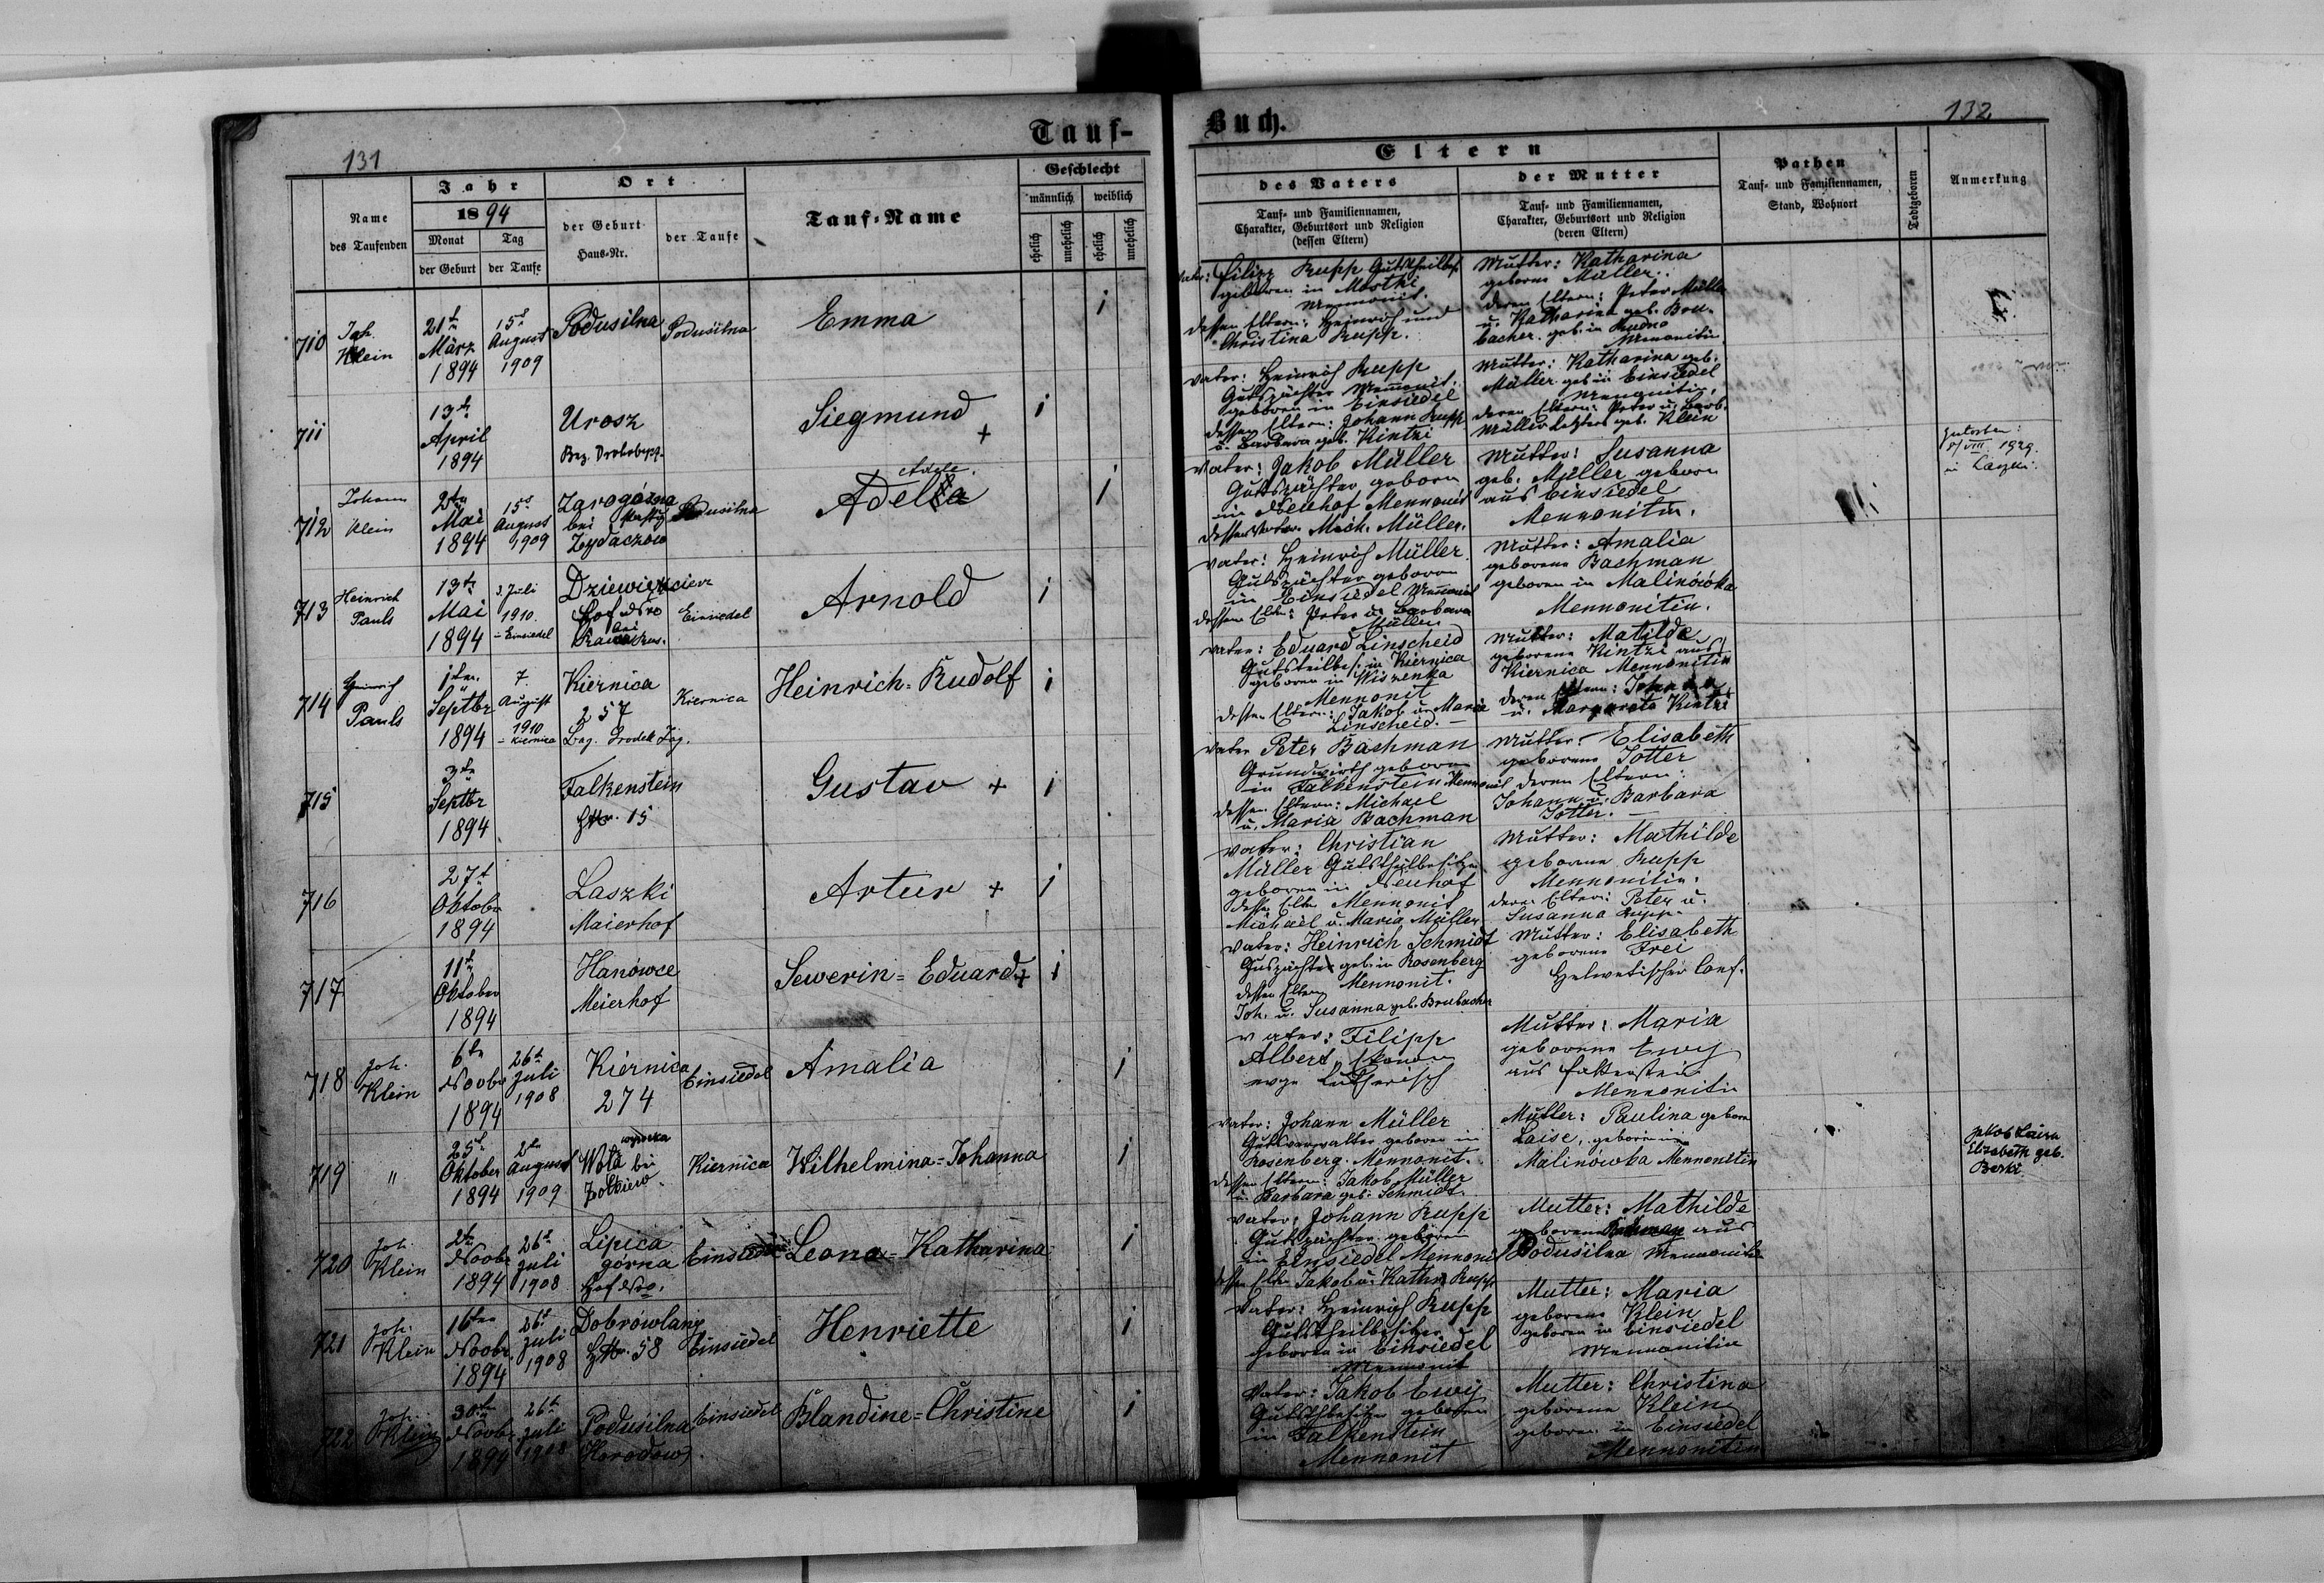 Tauf-
Buch.
131
132
Name
des Taufenden
Jahr
1894
Monat
der Geburt
Tag
der Taufe
Ort
der Geburt
Haus-Nr.
der Taufe
Tauf-Name
Geschlecht
männlich
weiblich
ehelich
unehelich
ehelich
unehelich
Eltern
des Vaters
Tauf- und Familiennamen,
Charakter, Geburtsort und Religion
(dessen Eltern)
der Mutter
Tauf- und Familiennamen,
Charakter, Geburtsort und Religion
(deren Eltern)
Pathen
Tauf- und Familiennamen,
Stand, Wohnort
Todtgeboren
Anmerkung
710
Joh.
Klein
21t
März
1894
15t
August
1909
Podusilna
Podusilna
Emma
1
Vater: Filipp Rupp Gutstheilbes.
geboren in Mostki
Mennonit.
dessen Eltern: Heinrich und
Christina Rupp.
Mutter: Katharina
geborne Müller.
deren Eltern: Peter Müller
u. Katharina geb. Bru-
bacher geb. in Rudno
Mennonitin
711
13t
April
1894
Urosz
Bez. Drohobycz.
Siegmund
+
1
Vater: Heinrich Rupp
Gutspächter Mennonit.
geboren in Einsiedel
dessen Eltern: Johann Rupp
u. Barbara geb. Kintzi
Mutter: Katharina geb.
Müller geb. in Einsiedel
Mennonitin,
deren Eltern: Peter u. Barb.
Müller letztere geb. Klein
712
Johann
Klein
2tn
Mai
1894
15t
August
1909
Zarogózna
bei
Zydaczow
Podusilna
Adele.
Adella
1
Vater: Jakob Müller
Gutspächter geboren
in Neuhof Mennonit
dessen Vater Mich. Müller.
Mutter: Susanna
geb. Müller geboren
aus Einsiedel
Mennonitin.
gestorben:
VIII. 1929.
in
713
Heinrich
Pauls
13tn
Mai
1894
3. Juli
1910.
in Einsiedel
Hof Nro
bei
Einsiedel
Arnold
1
Vater: Heinrich Müller
Gutspächter geboren
in Einsiedel Mennonit
dessen Elt.: Peter u. Barbara
Müller
Mutter: Amalia
geborene Bachman
geboren in Malinówka
Mennonitin.
714
Heinrich
Pauls
1ten
Septbr
1894
7.
August
1910
in Kiernica
Kiernica
257
Bez. Grodek Jag.
Kiernica
Heinrich-Rudolf
1
Vater: Eduard Linscheid
Gutsteilbes. in Kiernica
geboren in Wiszenka
Mennonit
dessen Eltern: Jakob u. Maria
Linscheid. —
Mutter: Matilde
geborene Kintzi aus
Kiernica Mennonitin
deren Eltern: Johann
u. Margareta Kintzi
715
3tn
Septbr
1894
Falkenstein
HNr. 15
Gustav +
1
Vater Peter Bachman
Grundwirth geboren
in Falkenstein Mennonit
dessen Eltern: Michael
u. Maria Bachman
Mutter: Elisabeth
geborene Jotter
deren Eltern:
Johann u. Barbara
Jotter. —
716
27t
Oktober
1894
Laszki
Maierhof
Artur +
1
Vater: Christian
Müller Gutstheilbesitzer
geboren in Neuhof
dessen Eltern Mennonit
Michael u. Maria Müller
Mutter: Mathilde
geborene Rupp
Mennonitin.
deren Eltern: Peter u.
Susanna Rupp.
717
11tn
Oktober
1894
Hanówce
Meierhof
Sewerin-Eduard +
1
Vater: Heinrich Schmidt
Guspächter geb. in Rosenberg
dessen Eltern Mennonit.
Joh. u. Susanna geb. Brubacher
Mutter: Elisabeth
geborene Frei
Helwetischer Conf.
718
Joh.
Klein
6tn
Novbr
1894
26t
Juli
1908
Kiernica
274
Einsiedel
Amalia
1
Vater: Filipp
Albert, Ekonom
evg. Lutherisch
Mutter: Maria
geborene Ewy
aus Falkenstein
Mennonitin
719
"
25t
Oktober
1894
2tn
August
1909
wysocka
Wola bei
Zolkiew.
Kiernica
Wilhelmina-Johanna
1
Vater: Johann Müller
Gutsverwalter geboren in
Rosenberg. Mennonit.
dessen Eltern: Jakob Müller
u. Barbara geb. Schmidt.
Mutter: Paulina geborn
Laise, geboren in
Malinówka Mennonitin
Jakob Laise
Elisabeth geb.
720
Joh.
Klein
2tn
Novbr
1894
26t
Juli
1908
Lipica
górna
Hof Nro.
Einsiedel
Leona-Katharina
1
Vater: Johann Rupp
Gutspächter geboren
in Einsiedel Mennonit
dessen Eltern Jakob u. Kath. Rupp
Mutter: Mathilde
geborene Bachman aus
Podusilna Mennonitin
721
Joh.
Klein
16ten
Novbr.
1894
26t
Juli
1908
Dobrówlany
HNr. 58
Einsiedel
Henriette
1
Vater: Heinrich Rupp
Gutstheilbesitzer
geboren in Einsiedel
Mennonit
Mutter: Maria
geborene Klein
geboren in Einsiedel
Mennonitin
722
Joh.
Klein
30tn
Novb.
1894
26t
Juli
1908
Podusilna
Horodow
Einsiedel
Blandine-Christine
1
Vater: Jakob Ewy
Gutsthbesitzer geboren
in Falkenstein
Mennonit
Mutter: Christina
geborene Klein
geboren in Einsiedel
Mennonitin